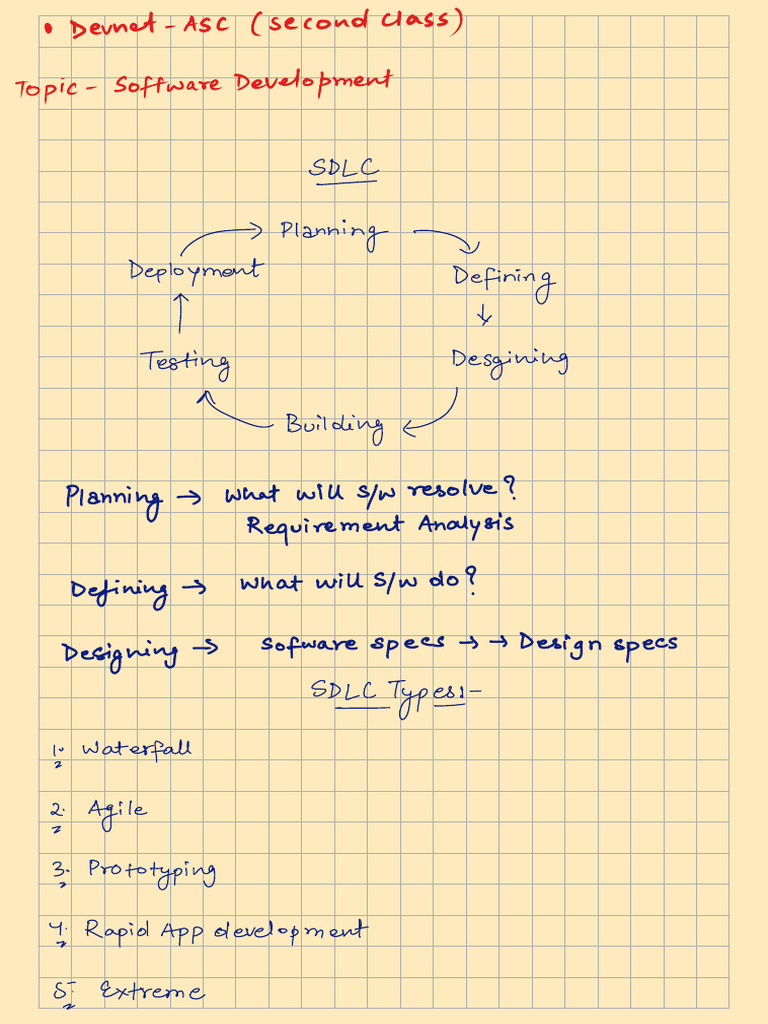 • Devnet - ASC (second class)
Topic - Software Development
SDLC
Planning
Deployment
Defining
Testing
Desgining
Building
Planning → What will s/w resolve?
Requirement Analysis
Defining → What will s/w do?
Designing → Sofware specs → → Design specs
SDLC Types:-
1. Waterfall
2. Agile
3. Prototyping
4. Rapid App development
5- Extreme